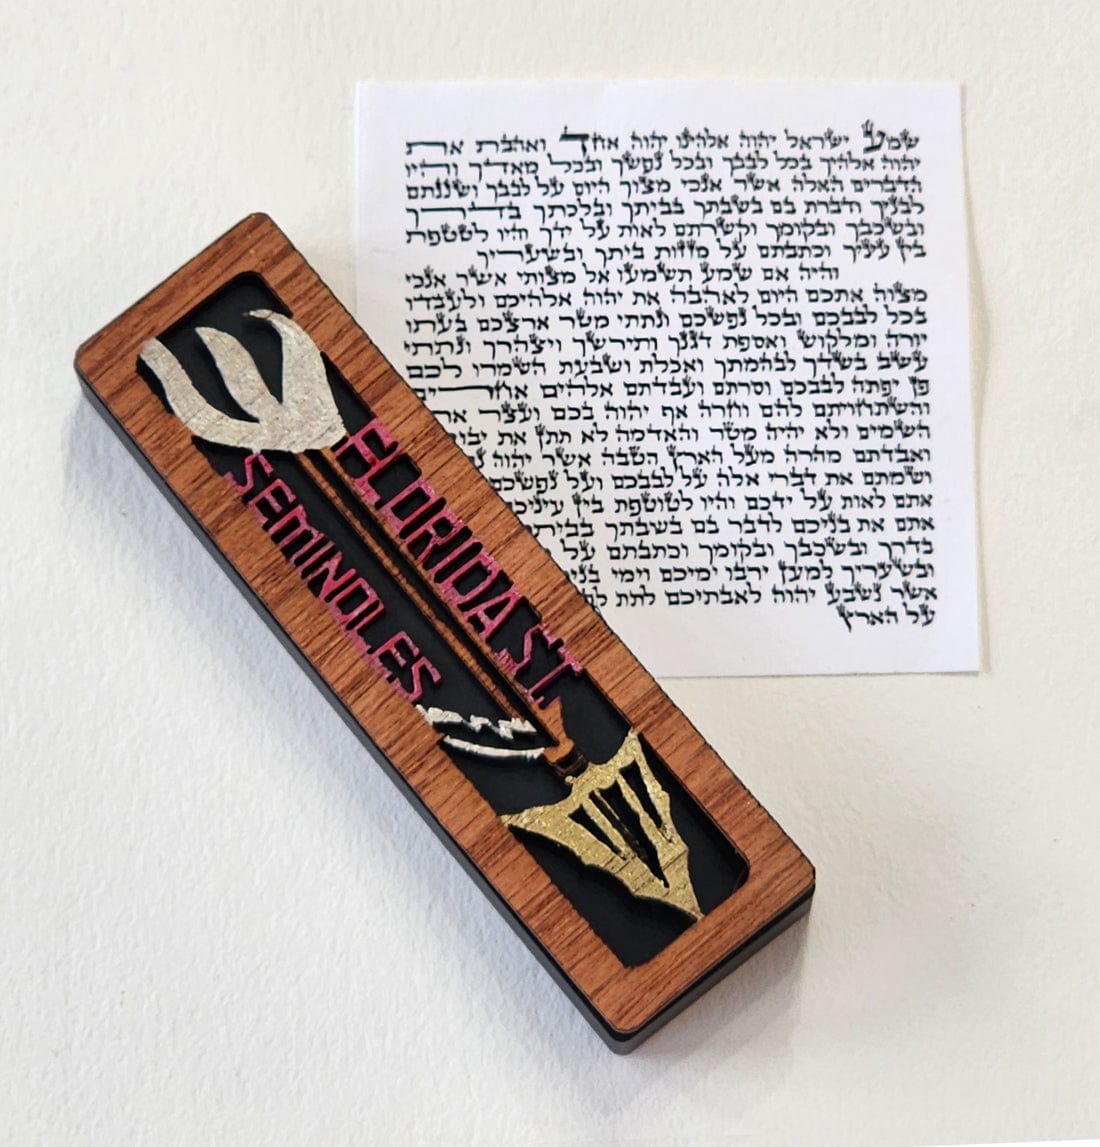 שמע ישראל יהוה אלהינו יהוה אחד ואהבת את
יהוה אלהיך בכל לבבך ובכל נפשך ובכל מאדך והיו
הדברים האלה אשר אנכי מצוך היום על לבבך ושננתם
לבניך ודברת בם בשבתך בביתך ובלכתך בדרך
ובשכבך ובקומך וקשרתם לאות על ידך והיו לטטפת
בין עיניך וכתבתם על מזוזות ביתך ובשעריך
והיה אם שמע תשמעו אל מצותי אשר אנכי
מצוה אתכם היום לאהבה את יהוה אלהיכם ולעבדו
בכל לבבכם ובכל נפשכם ונתתי מטר ארצכם בעתו
יורה ומלקוש ואספת דגנך ותירשך ויצהרך ונתתי
עשב בשדך לבהמתך ואכלת ושבעת השמרו לכם
פן יפתה לבבכם וסרתם ועבדתם אלהים אחרים
והשתחויתם להם וחרה אף יהוה בכם ועצר את
השמים ולא יהיה מטר והאדמה לא תתן את
ואבדתם מהרה מעל הארץ הטבה אשר יהוה
ושמתם את דברי אלה על לבבכם ועל נפשכם
אתם לאות על ידכם והיו לטוטפת בין
אתם את בניכם לדבר בם בשבתך
בדרך ובשכבך ובקומך וכתבתם על
ובשעריך למען ירבו ימיכם וימי
אשר נשבע יהוה לאבתיכם לתת
על הארץ
ש
FLORIDA ST.
SEMINOLES